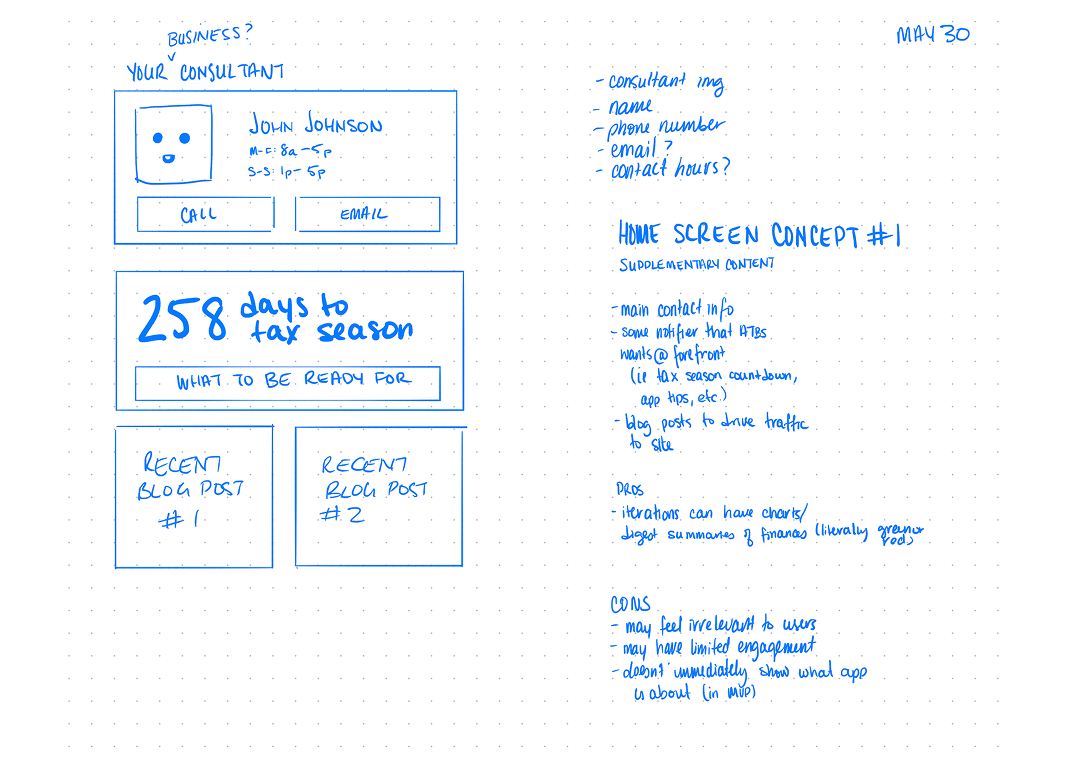 BUSINESS?
YOUR CONSULTANT
JOHN JOHNSON
M-F: 8a-5p
S-S: 1p-5p
CALL
EMAIL
258 days to
tax season
WHAT TO BE READY FOR
RECENT
BLOG POST
#1
RECENT
BLOG POST
#2
MAY 30
- consultant img
- name
- phone number
- email?
- contact hours?
HOME SCREEN CONCEPT #1
SUPPLEMENTARY CONTENT
- main contact info
- some notifier that ATBS
wants @ forefront
(ie tax season countdown,
app tips, etc.)
- blog posts to drive traffic
to site
PROS
- iterations can have charts/
digest summaries of finances (literally green or
red)
CONS
- may feel irrelevant to users
- may have limited engagement
- doesn't immediately show what app
is about (in MVP)